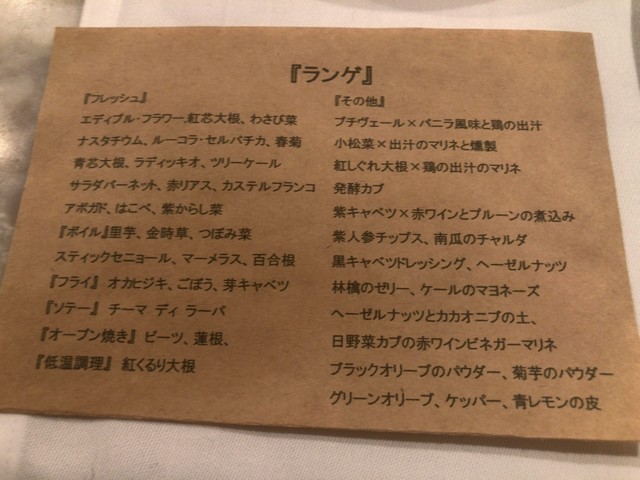 『ランゲ』
『フレッシュ』
エディブル・フラワー、紅芯大根、わさび菜
ナスタチウム、ルーコラ・セルバチカ、春菊
青芯大根、ラディッキオ、ツリーケール
サラダバーネット、赤リアス、カステルフランコ
アボガド、はこべ、紫からし菜
『ボイル』里芋、金時草、つぼみ菜
スティックセニョール、マーメラス、百合根
『フライ』オカヒジキ、ごぼう、芽キャベツ
『ソテー』チーマ ディ ラーパ
『オーブン焼き』ビーツ、蓮根、
『低温調理』紅くるり大根
『その他』
プチヴェール×バニラ風味と鶏の出汁
小松菜×出汁のマリネと燻製
紅しぐれ大根×鶏の出汁のマリネ
発酵カブ
紫キャベツ×赤ワインとプルーンの煮込み
紫人参チップス、南瓜のチャルダ
黒キャベツドレッシング、ヘーゼルナッツ
林檎のゼリー、ケールのマヨネーズ
ヘーゼルナッツとカカオニブの土、
日野菜カブの赤ワインビネガーマリネ
ブラックオリーブのパウダー、菊芋のパウダー
グリーンオリーブ、ケッパー、青レモンの皮